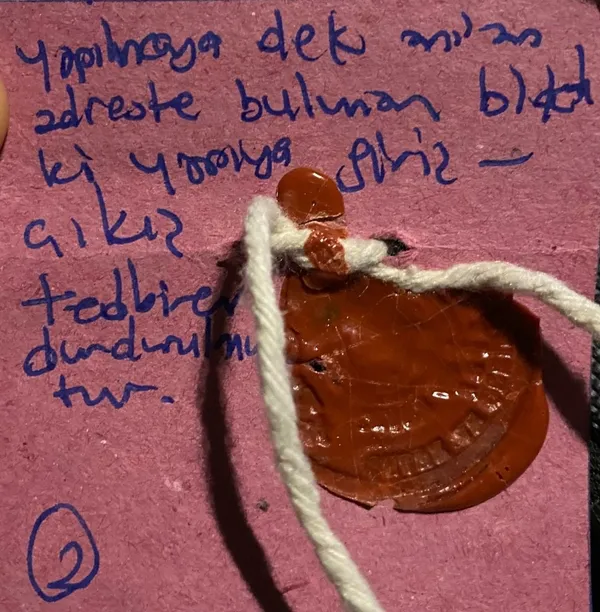 yapılmaya dek anılan
adreste bulunan blokta
ki yapıya giriş -
çıkış
tedbiren
durdurulmuş
tur.
2